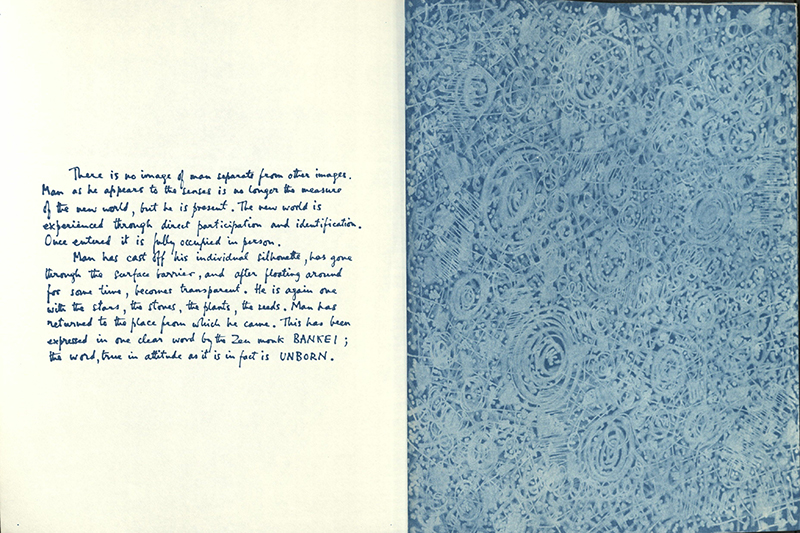 There is no image of man separate from other images.
Man as he appears to the senses is no longer the measure
of the new world, but he is present. The new world is
experienced through direct participation and identification.
Once entered it is fully occupied in person.
Man has cast off his individual silhouette, has gone
through the surface barrier, and after floating around
for some time, becomes transparent. He is again one
with the stars, the stones, the plants, the seeds. Man has
returned to the place from which he came. This has been
expressed in one clear word by the Zen monk BANKEI;
the word, true in attitude as it is in fact is UNBORN.